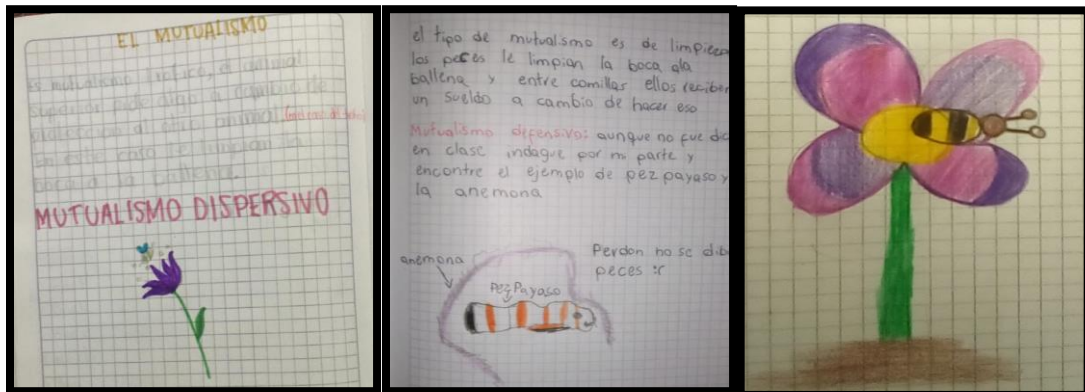 EL MUTUALISMO
es mutualismo
superior pide algo a
protección al otro animal.
En este caso le limpian la
boca a la ballena.
MUTUALISMO DISPERSIVO
el tipo de mutualismo es de limpieza
los peces le limpian la boca ala
ballena y entre comillas ellos reciben
un sueldo a cambio de hacer eso
Mutualismo defensivo: aunque no fue dic
en clase indague por mi parte y
encontre el ejemplo de pez payaso y
la anemona
anemona
Perdon no se dib
peces :(
Pez Payaso